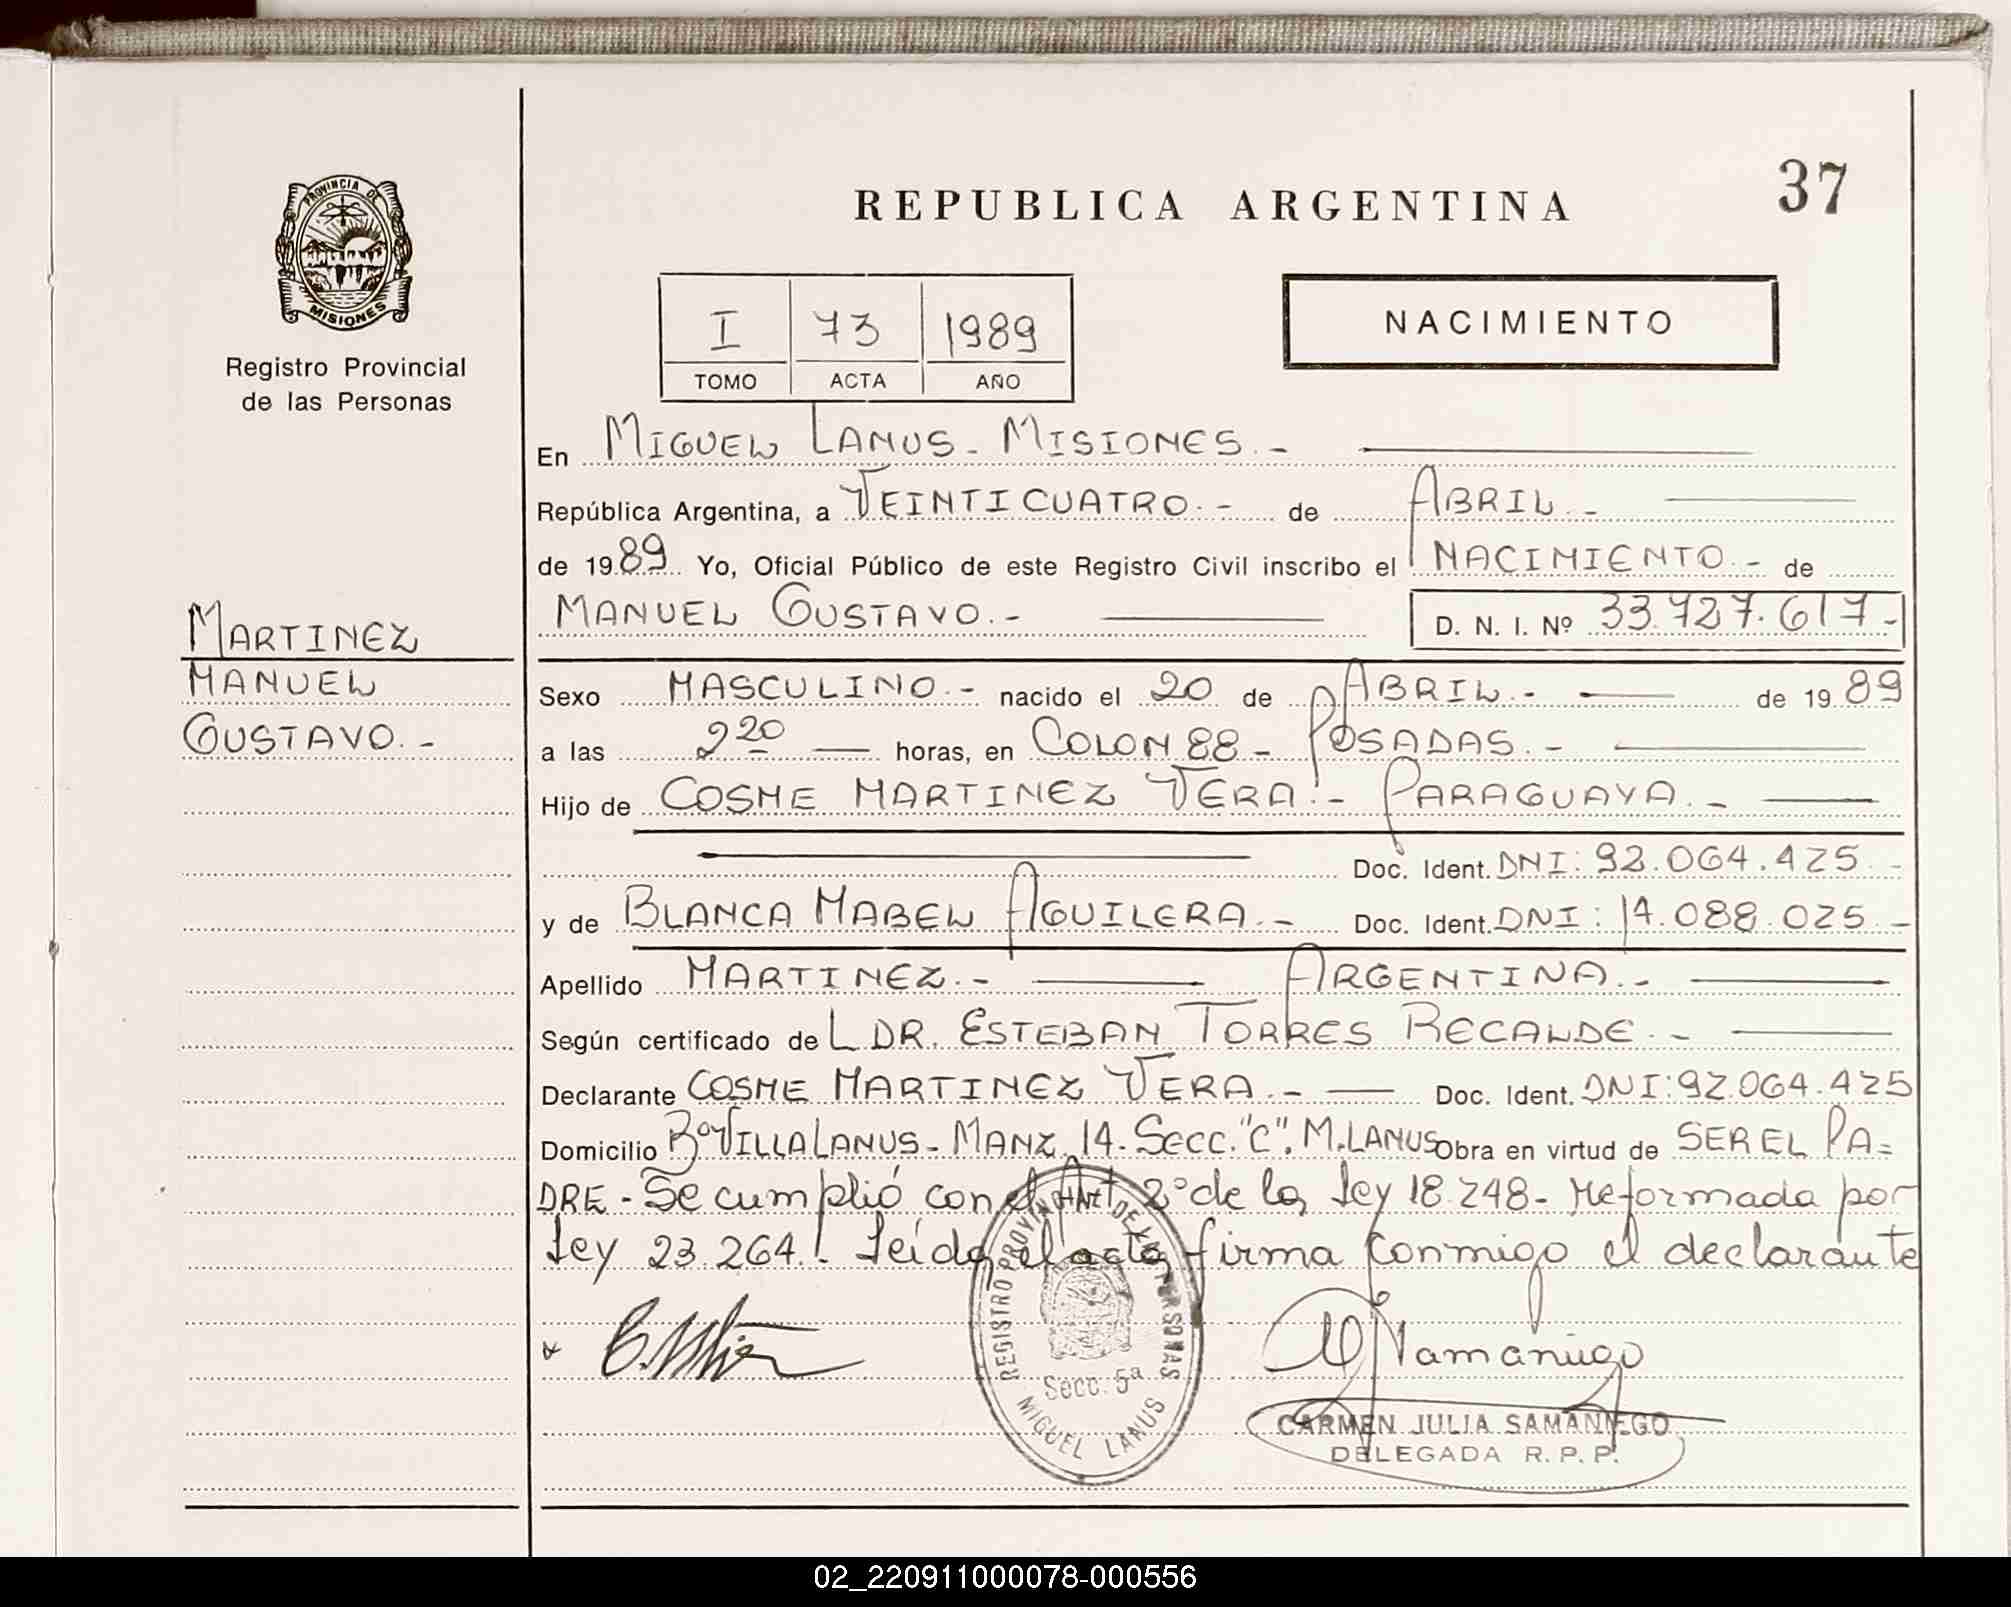 37
REPUBLICA ARGENTINA
PROVINCIA DE
MISIONES
Registro Provincial
de las Personas
I 73 1989
TOMO ACTA AÑO
NACIMIENTO
En MIGUEL LANUS - MISIONES.-
República Argentina, a VEINTICUATRO.- de ABRIL.-
de 1989 Yo, Oficial Público de este Registro Civil inscribo el NACIMIENTO.- de
MANUEL GUSTAVO.- D. N. I. Nº 33.727.617-
MARTINEZ
MANUEL
GUSTAVO.-
Sexo MASCULINO.- nacido el 20 de ABRIL.- de 1989
a las 2 20 horas, en COLON 88- POSADAS.-
Hijo de COSME MARTINEZ VERA.- PARAGUAYA.-
Doc. Ident. DNI: 92.064.425.-
y de BLANCA MABEL AGUILERA.- Doc. Ident. DNI: 14.088.025.-
Apellido MARTINEZ.- ARGENTINA.-
Según certificado de L DR. ESTEBAN TORRES RECALDE.-
Declarante COSME MARTINEZ VERA.- Doc. Ident. DNI: 92.064.425
Domicilio Bº VILLA LANUS- MANZ. 14- SECC. "C". M. LANUS Obra en virtud de SER EL PA=
DRE - Se cumplió con el Art 2º de la Ley 18.248- Reformada por
Ley 23.264.- Leída el acta firma conmigo el declarante
REGISTRO PROVINCIAL DE LAS PERSONAS
Secc. 5ª
MIGUEL LANUS
CARMEN JULIA SAMANIEGO
DELEGADA R. P. P.
02_220911000078-000556